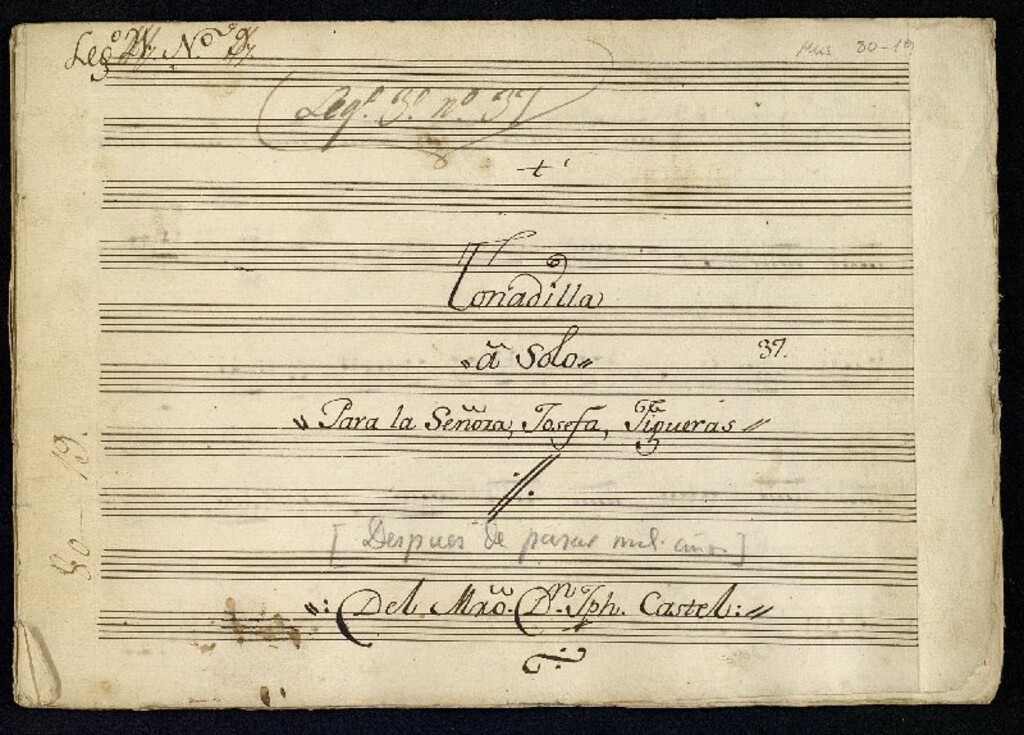 Leg.º Nº
Mus 80-19
(Leg.º 3º nº 37)
t
Tonadilla
"ã Solo"
37.
" Para la Señora, Josefa, Figueras "
[Despues de pasar mil años]
": Del Mrõ. Dn. Jph. Castel: "